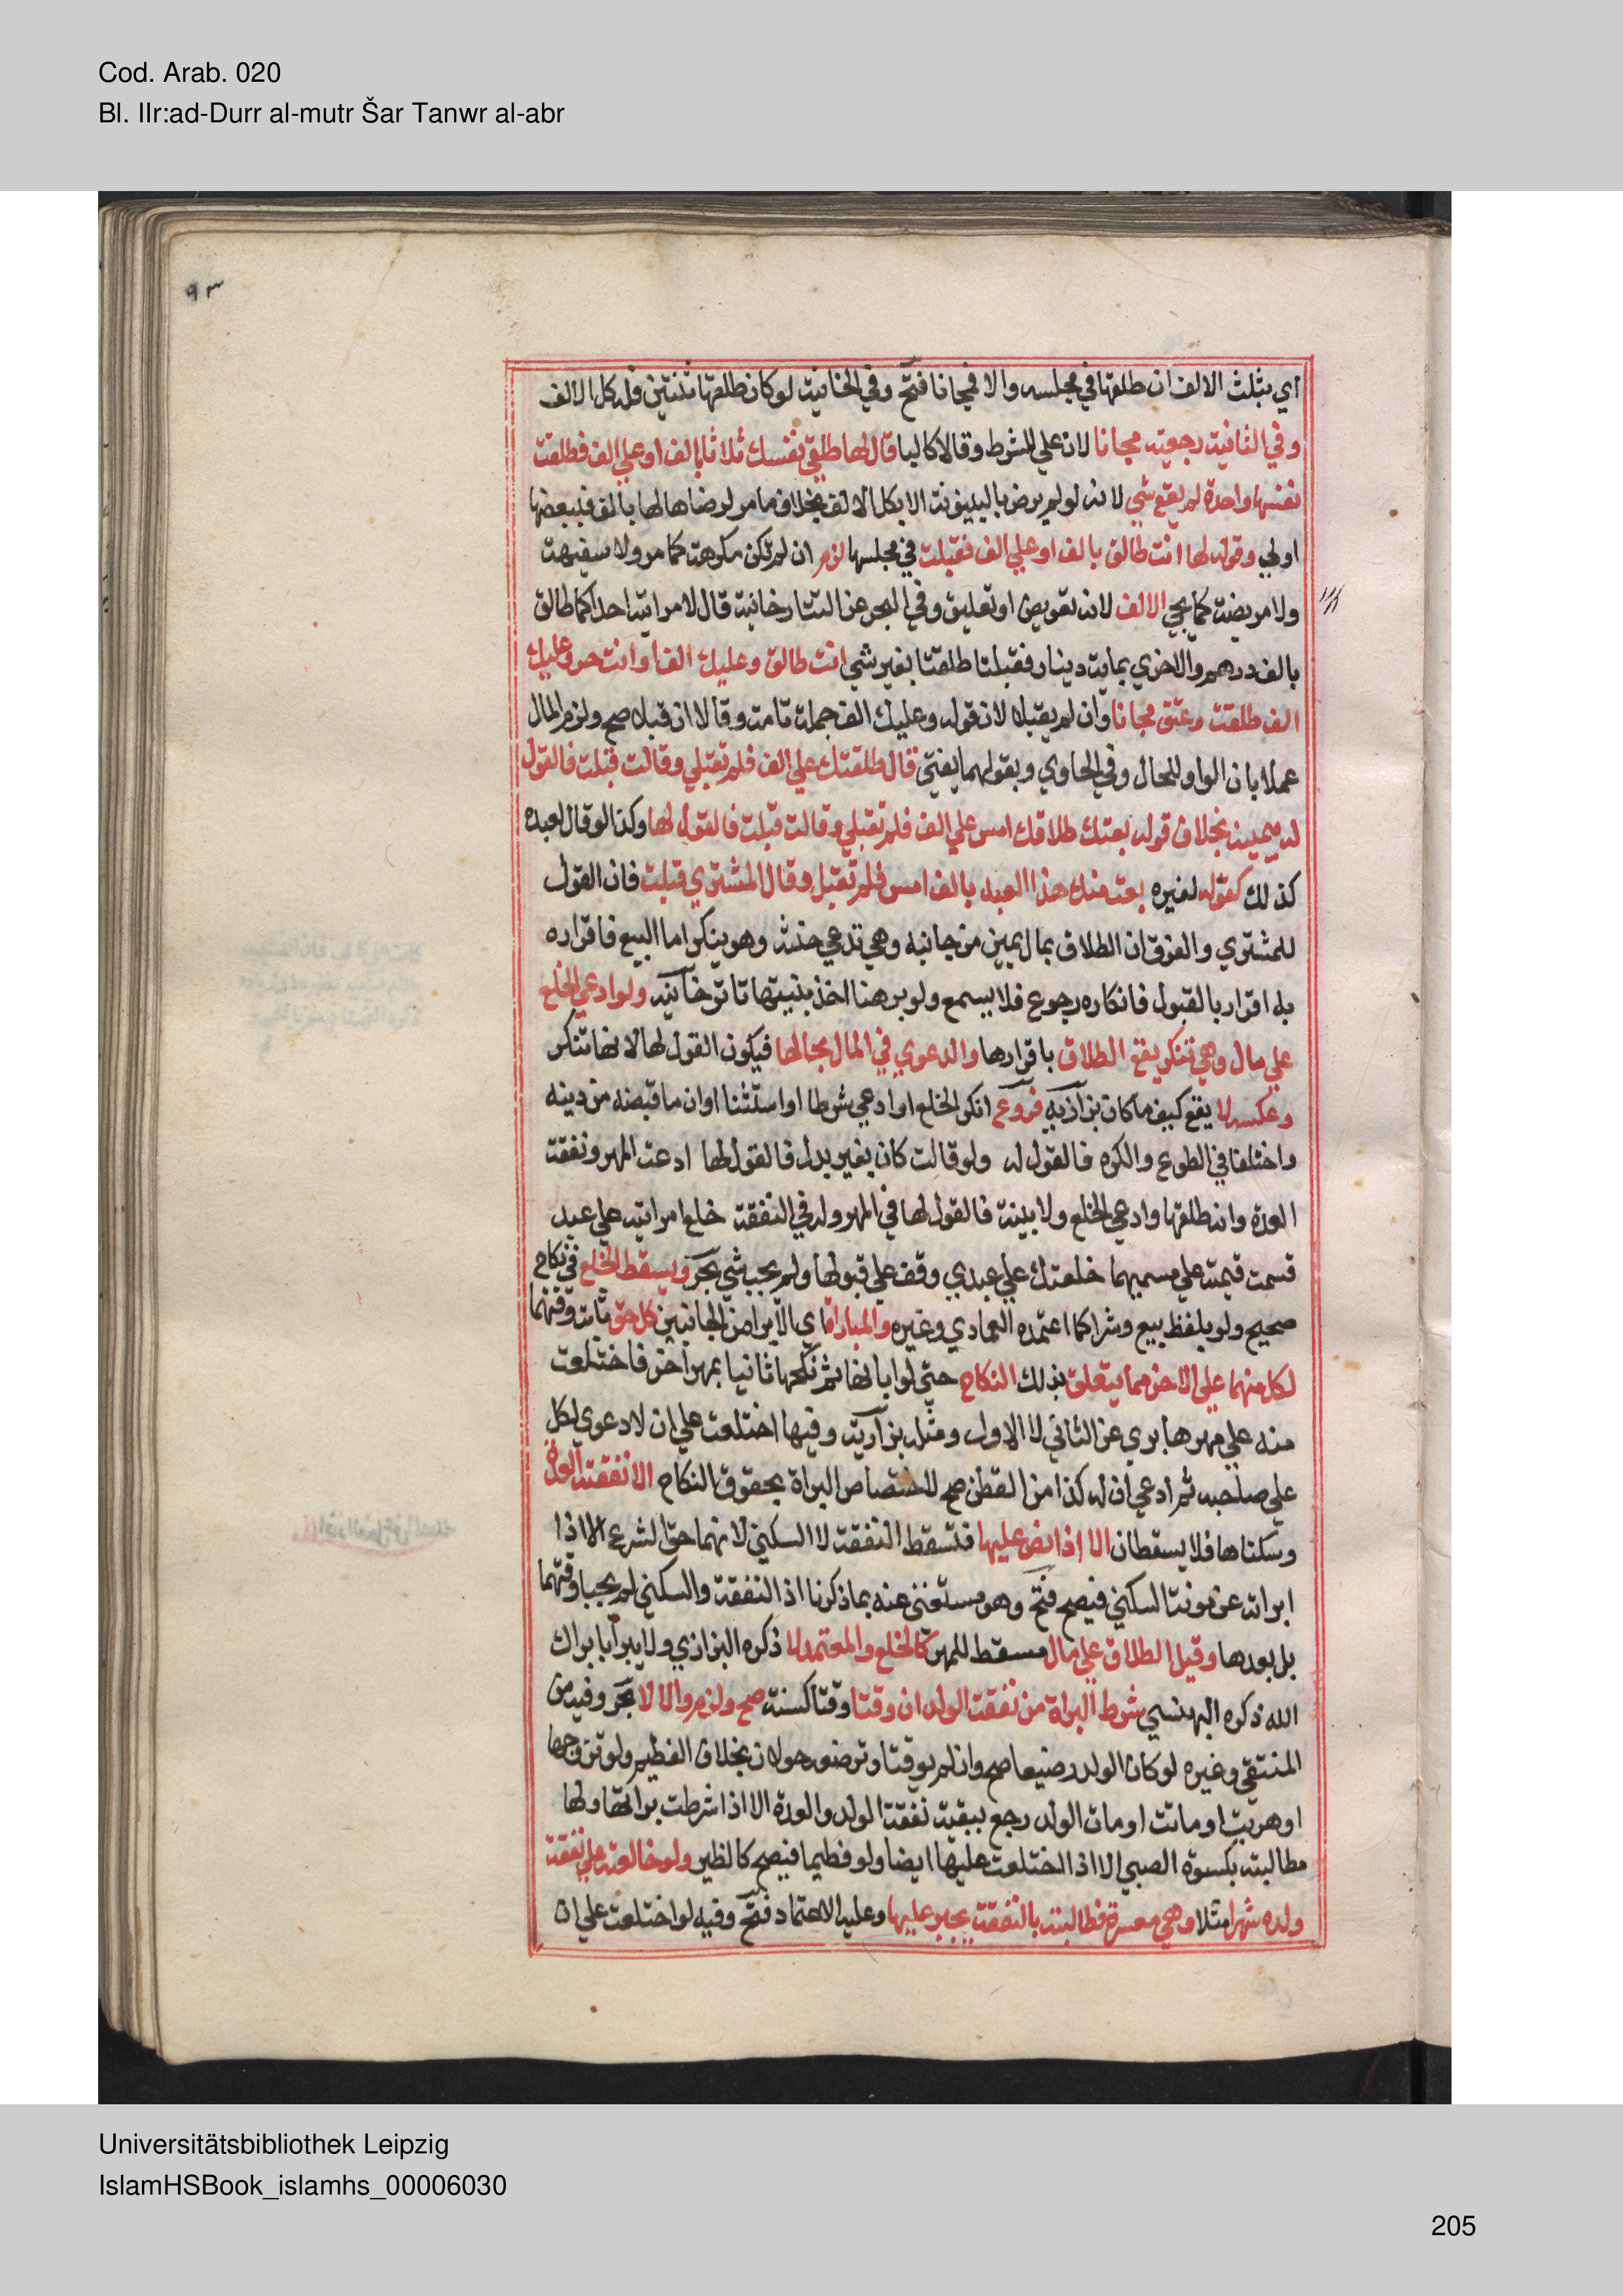 Cod. Arab. 020
Bl. IIr:ad-Durr al-mutr Šar Tanwr al-abr
٩٣
اي بثلث الالف ان طلقها في مجلسه والا فمجانا فتح وفي الخانية لو كان طلقها ثنتين فله كل الالف
وفي الثانية رجعية مجانا لان علي للشرط وقالا كالبا قال لها طلقي نفسك ثلاثا بالف او علي الف فطلقت
نفسها واحدة لم يقع شي لانه لو لم يرض بالبينونة الا بكل الالف بخلاف ما مر لرضاها لها بالف فببعضها
اولي وقوله لها انت طالق بالف او علي الف فقبلت في مجلسها لزم ان لم تكن مكرهة كما مر ولا سفيهة
ولا مريضة كما يجي الالف لانه تفويض او تعليق وفي البحر عن التتارخانية قال لامراتيه احداكما طالق
بالف درهم والاخري بماية دينار فقبلتا طلقتا بغير شي انت طالق وعليك الف او انت حر وعليك
الف طلقت وعتق مجانا وان لم يقبلا لان قوله وعليك الف جملة تامة وقالا ان قبلا صح ولزم المال
عملا بان الواو للحال وفي الحاوي وبقولهما يفتي قال طلقتك علي الف فلم تقبلي وقالت قبلت فالقول
له بيمينه بخلاف قوله بعتك طلاقك امس علي الف فلم تقبلي وقالت قبلت فالقول لها وكذا لو قال لعبده
كذلك كقوله لغيره بعت منك هذا العبد بالف امس فلم تقبل وقال المشتري قبلت فان القول
للمشتري والفرق ان الطلاق بمال يمين من جانبه وهي تدعي حنثه وهو ينكر اما البيع فاقراره
به اقرار بالقبول فانكاره رجوع فلا يسمع ولو برهنا اخذ ببنيتها تاترخانية ولو ادعي الخلع
علي مال وهي تنكر يقع الطلاق باقرارها والدعوي في المال بحالها فيكون القول لها لانها تنكر
وعكسه لا يقع كيف ما كان بزازية فروع انكر الخلع او ادعي شرطا او استثنا او ان ما قبضه من دينه
واختلفا في الطوع والكره فالقول له ولو قالت كان بغير بدل فالقول لها ادعت المهر ونفقة
العدة وانه طلقها وادعي الخلع ولا بينة فالقول لها في المهر وله في النفقة خلع امراتيه علي عبد
قسمت قيمته علي مسميهما خلعتك علي عبدي وقف علي قبولها ولم يجب شي بحر ويسقط الخلع في نكاح
صحيح ولو بلفظ بيع وشرا كما اعتمده العمادي وغيره والمباراة اي الابرا من الجانبين كل حق ثابت وقتهما
لكل منهما علي الاخر مما يتعلق بذلك النكاح حتي لو ابانها ثم نكحها ثانيا بمهر اخر فاختلعت
منه علي مهرها بري عن الثاني لا الاول ومثله بزازية وفيها اختلعت علي ان لا دعوي لكل
علي صاحبه ثم ادعي ان له كذا من القطن صح لاختصاص البراة بحقوق النكاح الا نفقة العدة
وسكناها فلا يسقطان الا اذا نص عليها فتسقط النفقة لا السكني لانهما حق الشرع الا اذا
ابراته عن مونة السكني فيصح فتح وهو مستغني عنه بما ذكرنا اذ النفقة والسكني لم يجبا وقتهما
بل بعدها وقيل الطلاق علي مال مسقط للمهر كالخلع والمعتمد لا ذكره البزازي ولا يبرا بابراك
الله ذكره البهنسي شرط البراة من نفقة الولد ان وقتا وقتا كسنة صح ولزم والا لا بحر وفيه من
المنتقي وغيره لو كان الولد رضيعا صح وان لم يوقتا وترضعه حولان بخلاف الفطيم ولو تزوجها
او هربت او ماتت او مات الولد رجع ببقية نفقة الولد والعدة الا اذا شرطت براتها ولها
مطالبته بكسوة الصبي الا اذا اختلعت عليها ايضا ولو فطيما فيصح كالظير ولو خالعته علي نفقة
ولده شهرا مثلا وهي معسرة فطالبته بالنفقة يجبر عليها وعليه الاعتماد فتح وفيه لو اختلعت علي ان
Universitätsbibliothek Leipzig
IslamHSBook_islamhs_00006030
205